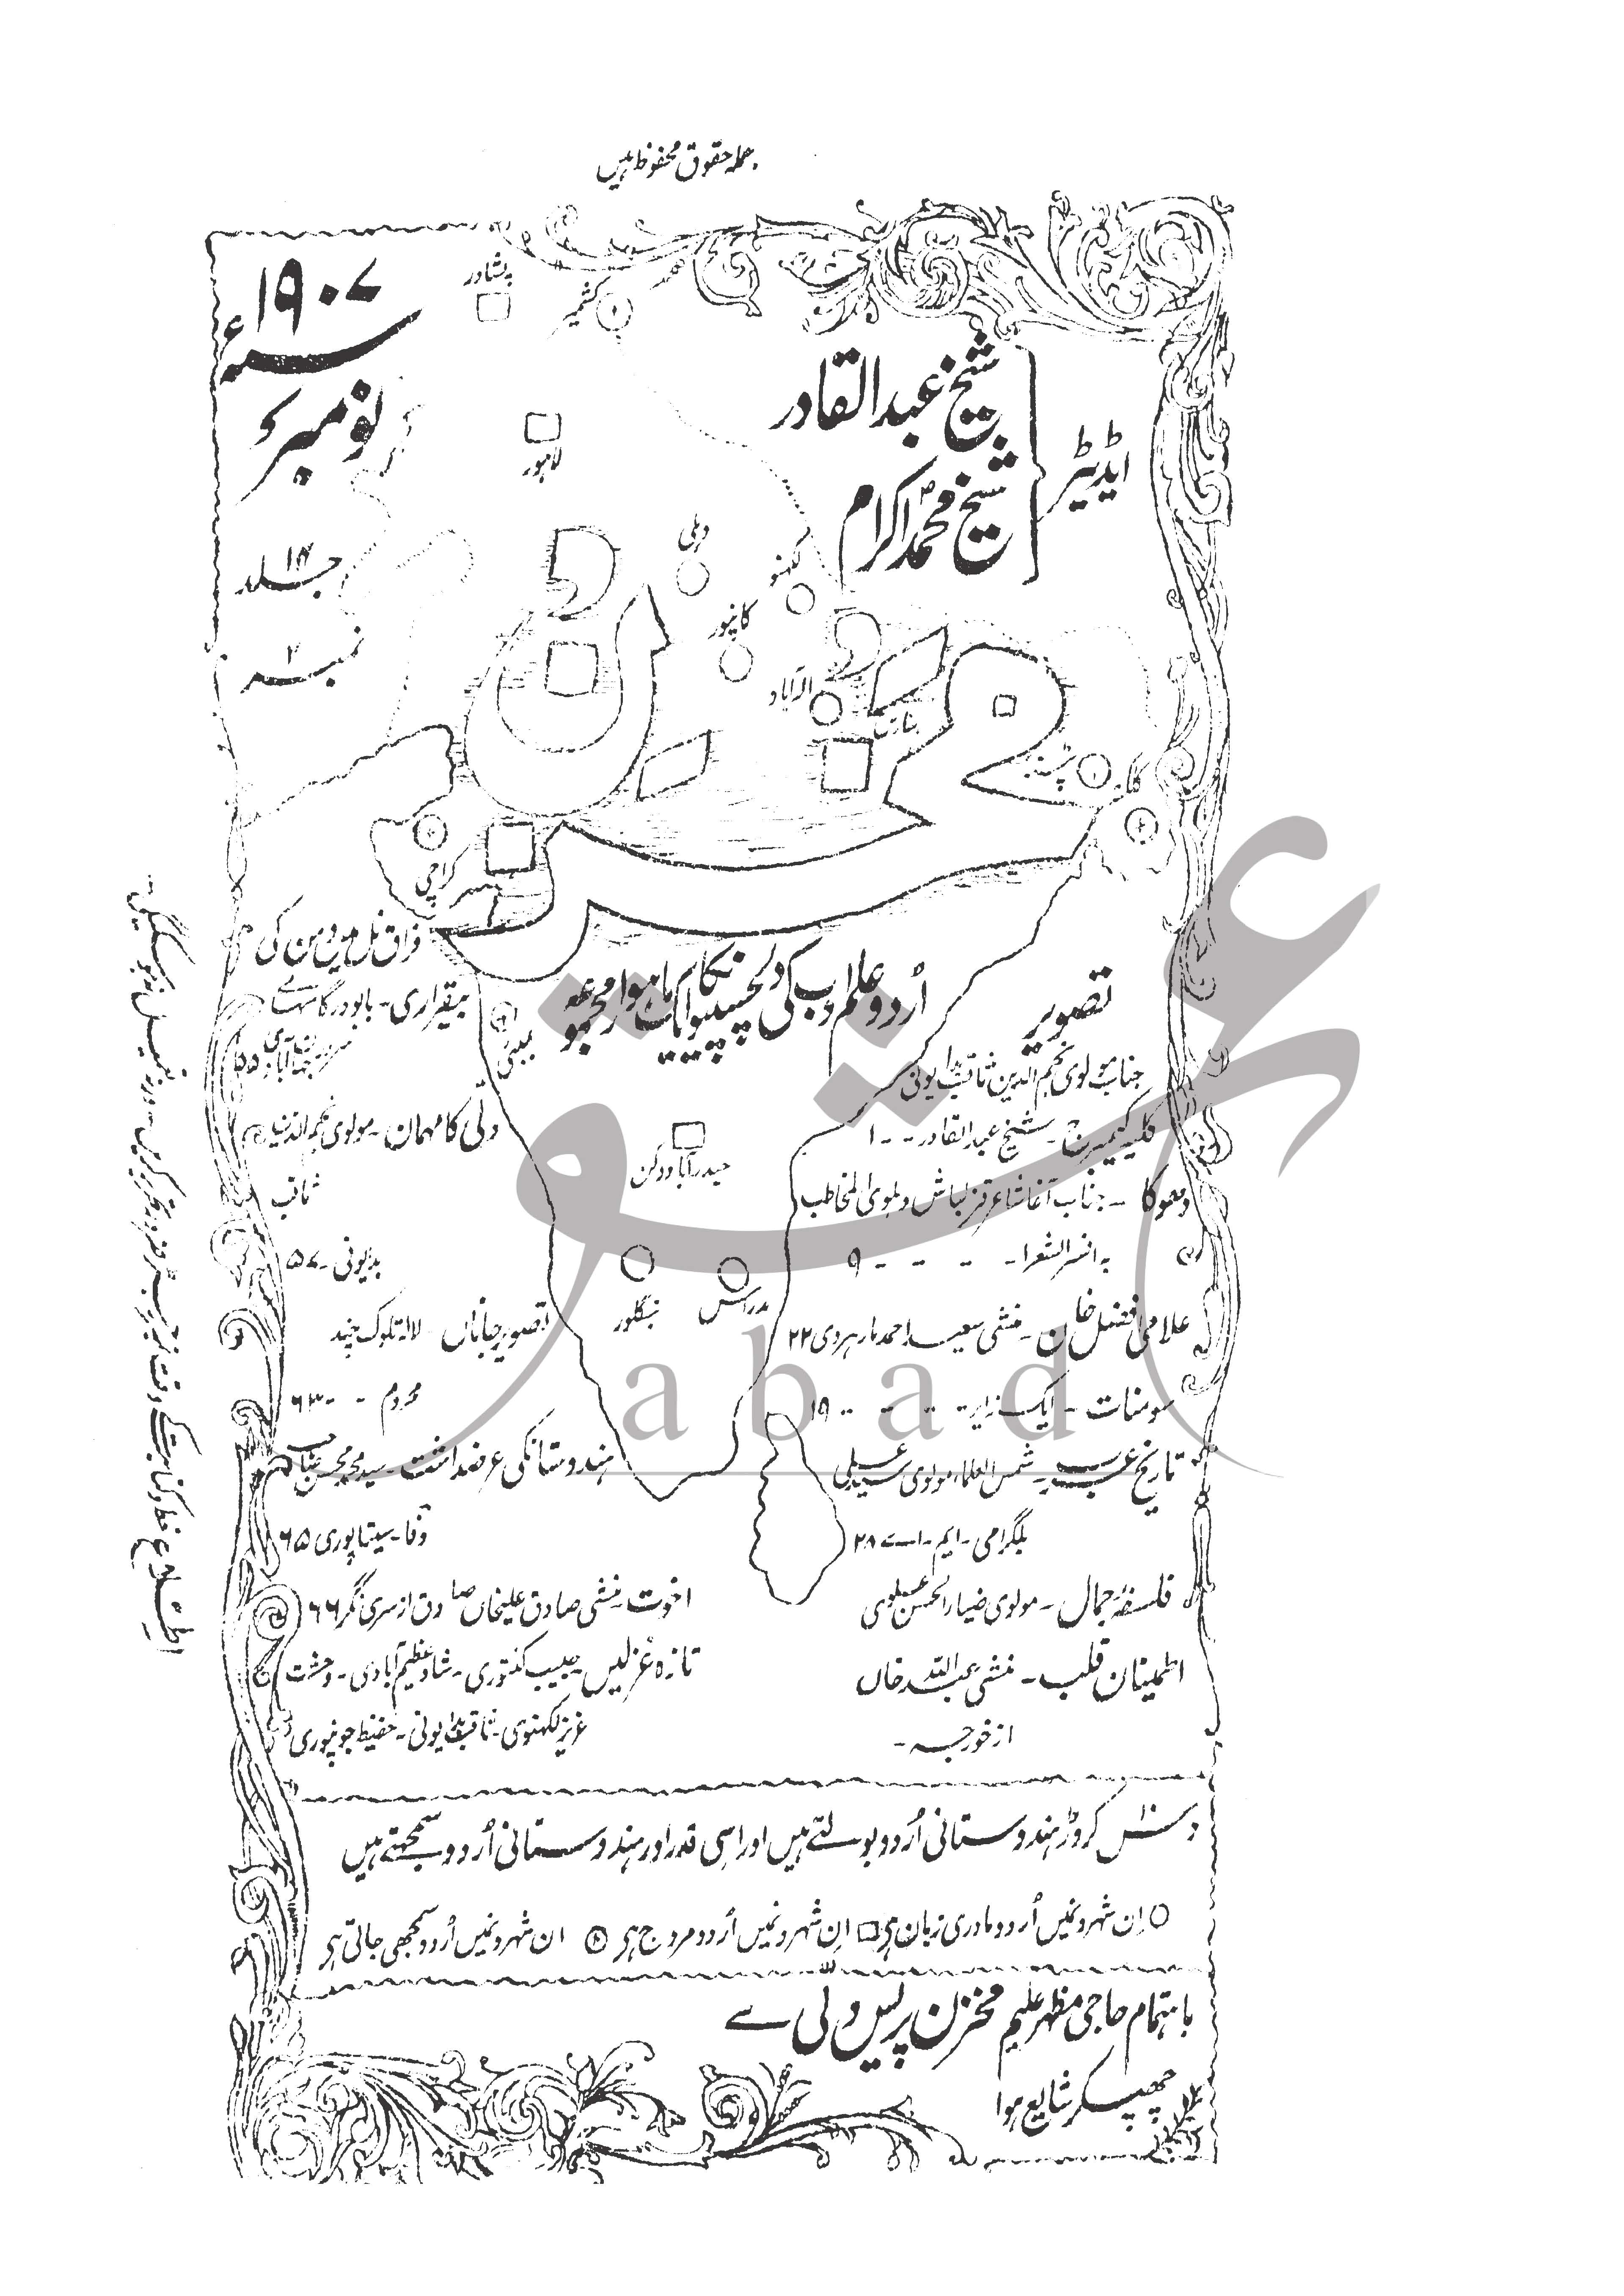 جملہ حقوق محفوظ ہیں
۱۹۰۷ سنہ ء
نومبر
جلد ۱۴
نمبر ۲
ایڈیٹر
شیخ عبدالقادر
شیخ محمد اکرام
پشاور
کشمیر
لاہور
دہلی
لکھنؤ
کانپور
الہ آباد
بنارس
پٹنہ
کلکتہ
کراچی
بمبئی
حیدرآباد دکن
بنگلور
مدراس
مخزن
اُردو علم ادب کی دلچسپیوں کا ماہوار مجموعہ
تصویر
جناب مولوی نجم الدین ثاقب بدایونی
کلیہ کیمبرج ۔ شیخ عبدالقادر - - ۱
دھوکا ۔ جناب آغا شاعر قزلباش دہلوی المخاطب
بہ افسر الشعرا - - - - ۹
علامی افضل خان ۔ منشی سعید احمد مارہروی ۲۲
سومنات ۔ ایک زایر - - - - ۱۹
تاریخ عرب ۔ شمس العلماء مولوی سید علی
بلگرامی ۔ ایم ۔ اے ۲۸
فلسفۂ جمال ۔ مولوی ضیاء الحسن علوی
اطمینان قلب ۔ منشی عبداللہ خاں
از خورجہ ۔
فراق نل میں دمن کی
بیقراری ۔ بابو درگا سہائے
سرور جہان آبادی ۵۵
دلی کا مہمان ۔ مولوی نجم الدین
ثاقب
بدایونی ۔ ۵۷
تصویر جاناں لالہ تلوک چند
محروم - - ۶۳
ہندوستان کی عرضداشت ۔ سید محمد محسن صاحب
وفا ۔ سیتاپوری ۶۵
اخوت ۔ منشی صادق علیخاں صادق از سری نگر ۶۶
تازہ غزلیں ۔ حبیب کنتوری ۔ شاد عظیم آبادی ۔ وحشت
عزیز لکھنوی ۔ ثاقب بدایونی ۔ حفیظ جونپوری
دس کروڑ ہندوستانی اُردو بولتے ہیں اور اسی قدر اور ہندوستانی اُردو سمجھتے ہیں
○ اِن شہرونمیں اُردو مادری زبان ہے □ اِن شہرونمیں اُردو مروج ہے ان شہرونمیں اُردو سمجھی جاتی ہے
باہتمام حاجی مظہر علیم مخزن پریس دلی سے
چھپکر شایع ہوا
عشق
abad